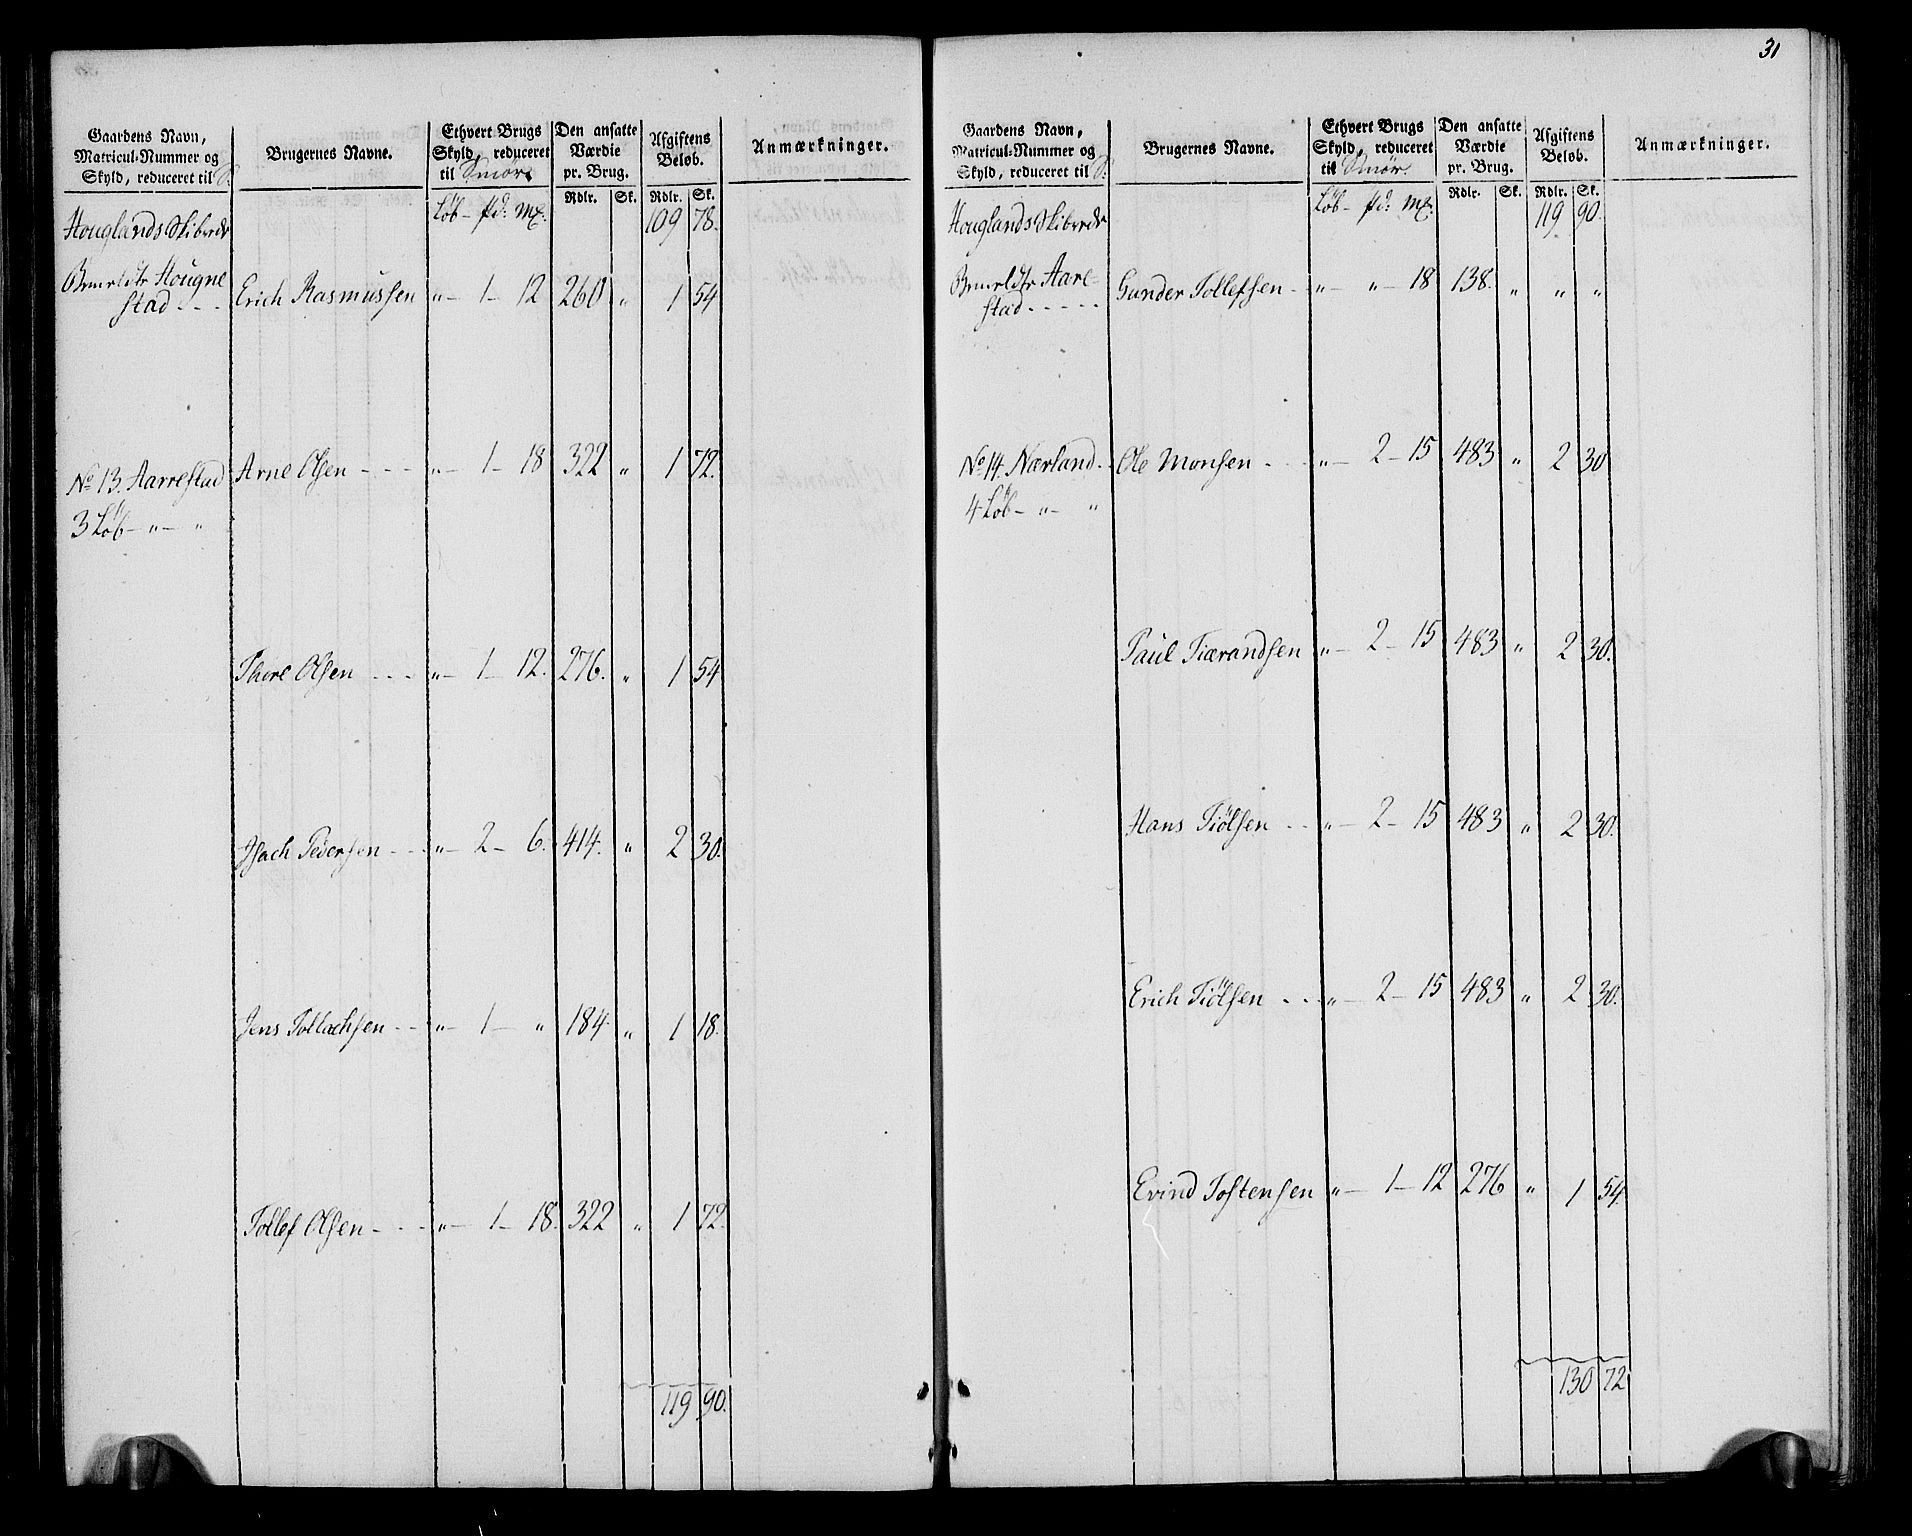 Gaardens Navn, Matricul-Nummer og Skyld, reduceret til S. | Brugernes Navne. | Ethvert Brugs Skyld, reduceret til Smör. | Den ansatte Værdie pr. Brug. | Afgiftens Beløb. | Anmærkninger.
Rdlr. Sk. Rdlr. Sk.
Houglands Skibrede Løb - pd: mk: 109 78.
Hougne
stad . . . Erich Rasmussen " - 1 - 12 260 " 1 54
No 13. Aarrestad Arne Olsen - - - - " - 1 - 18 322 " 1 72.
3 Løb - " - "
Thore Olsen . . . " - 1 - 12. 276. " 1 54
Isach Pedersen - - - " - 2 - 6. 414. " 2 30.
Jens Tollachsen - - " - 1 - " 184. " 1 18.
Tollef Olsen - . - . " - 1 - 18. 322 " 1 72.
119 90.
31
Gaardens Navn, Matricul-Nummer og Skyld, reduceret til S. | Brugernes Navne. | Ethvert Brugs Skyld, reduceret til Smör. | Den ansatte Værdie pr. Brug. | Afgiftens Beløb. | Anmærkninger.
Rdlr. Sk. Rdlr. Sk.
Houglands Skibrede Løb - pd: mk: 119 90.
Aare-
stad . . . . . Gunder Tollefsen - " - " - 18 138. " " "
No 14. Nærland - Ole Monsen - - - " - 2 - 15 483 " 2 30
4 Løb - " - "
Paul Tiærandsen " - 2 - 15 483 " 2 30.
Hans Tiölsen - - " - 2 - 15 483 " 2 30.
Erich Tiölsen - - - " - 2 - 15 483 " 2 30.
Evind Tostensen " - 1 - 12 276 " 1 54
130 72